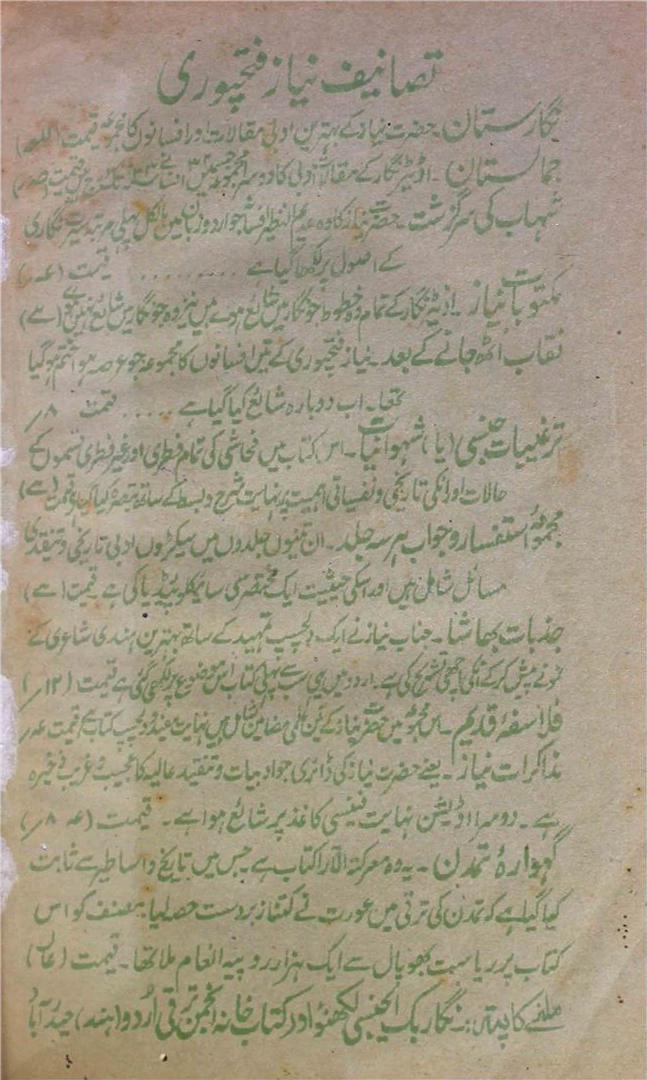 تصانیف نیاز فتحپوری
نگارستان۔ حضرت نیاز کے بہترین ادبی مقالات اور افسانوں کا مجموعہ قیمت
جمالستان۔ اڈیٹر نگار کے مقالات ادبی کا دوسرا مجموعہ جسمیں
شہاب کی سرگزشت۔ حضرت نیاز کا وہ عدیم النظیر افسانہ جو اردو زبان میں بالکل پہلی مرتبہ سیرت نگاری
کے اصول پر لکھا گیا ہے . . . . . . . . . . قیمت
مکتوبات نیاز۔ اڈیٹر نگار کے تمام وہ خطوط جو نگار میں شایع ہوئے ہیں نیز وہ جو نگار میں شایع نہیں ہوئے
نقاب اٹھ جانے کے بعد۔ نیاز فتحپوری کے تین افسانوں کا مجموعہ جو عرصہ ہوا ختم ہو گیا
تھا۔ اب دوبارہ شائع کیا گیا ہے . . . . . قیمت ۸ر
ترغیبات جنسی (یا) شہوانیات۔ اس کتاب میں فحاشی کی تمام فطری اور غیر فطری قسموں کے
حالات اور انکی تاریخی و نفسیاتی اہمیت پر نہایت شرح و بسط کے ساتھ تبصرہ کیا گیا ہے قیمت
مجموعہ استفسار و جواب ہر سہ جلد۔ ان تینوں جلدوں میں سیکڑوں ادبی تاریخی و تنقیدی
مسائل شامل ہیں اور اسکی حیثیت ایک مختصر سی سائیکلوپیڈیا کی ہے قیمت
جذبات بھاشا۔ جناب نیاز نے ایک دلچسپ تمہید کے ساتھ بہترین ہندی شاعری کے
نمونے پیش کر کے انکی ایسی تشریح کی ہے۔ اردو میں یہ سب سے پہلی کتاب اس موضوع پر لکھی گئی ہے قیمت (۱۲ر)
فلاسفۂ قدیم۔ اس مجموعہ میں حضرت نیاز کے تین علمی مضامین شامل ہیں نہایت مفید و دلچسپ کتاب ہے قیمت
مذاکرات نیاز۔ یعنے حضرت نیاز کی ڈائری جو ادبیات و تنقید عالیہ کا عجیب و غریب ذخیرہ
ہے۔ دوسرا اڈیشن نہایت نفیس کاغذ پر شائع ہوا ہے۔ قیمت
گہوارۂ تمدن۔ یہ وہ معرکۃ الآرا کتاب ہے جس میں تاریخ و اساطیر سے ثابت
کیا گیا ہے کہ تمدن کی ترقی میں عورت نے کتنا زبردست حصہ لیا۔ مصنف کو اس
کتاب پر ریاست بھوپال سے ایک ہزار روپیہ انعام ملا تھا۔ قیمت
ملنے کا پتہ:۔ نگار بک ایجنسی لکھنؤ اور کتاب خانہ انجمن ترقی اُردو (ہند) حیدرآباد